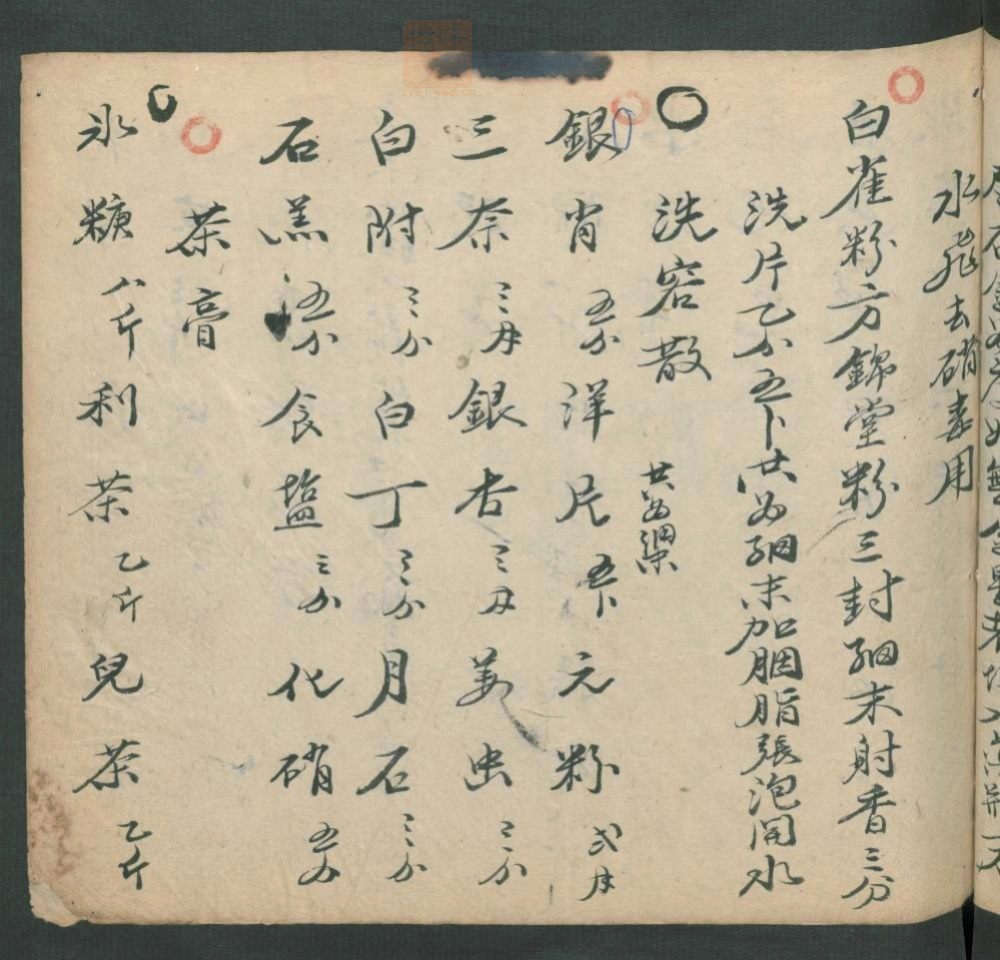 水飛去硝毒用
白雀粉方錦堂粉三封細末射香三分
洗片乙分五卜共為細末加胭脂張泡開水
洗容散 共為細末
銀肖五分洋片五卜元粉弍
三奈三銀杏三姜虫三分
白附三分白丁三分月石三分
石羔五分食塩三分化硝五
茶膏
氷糖八斤利茶乙斤兒茶乙斤